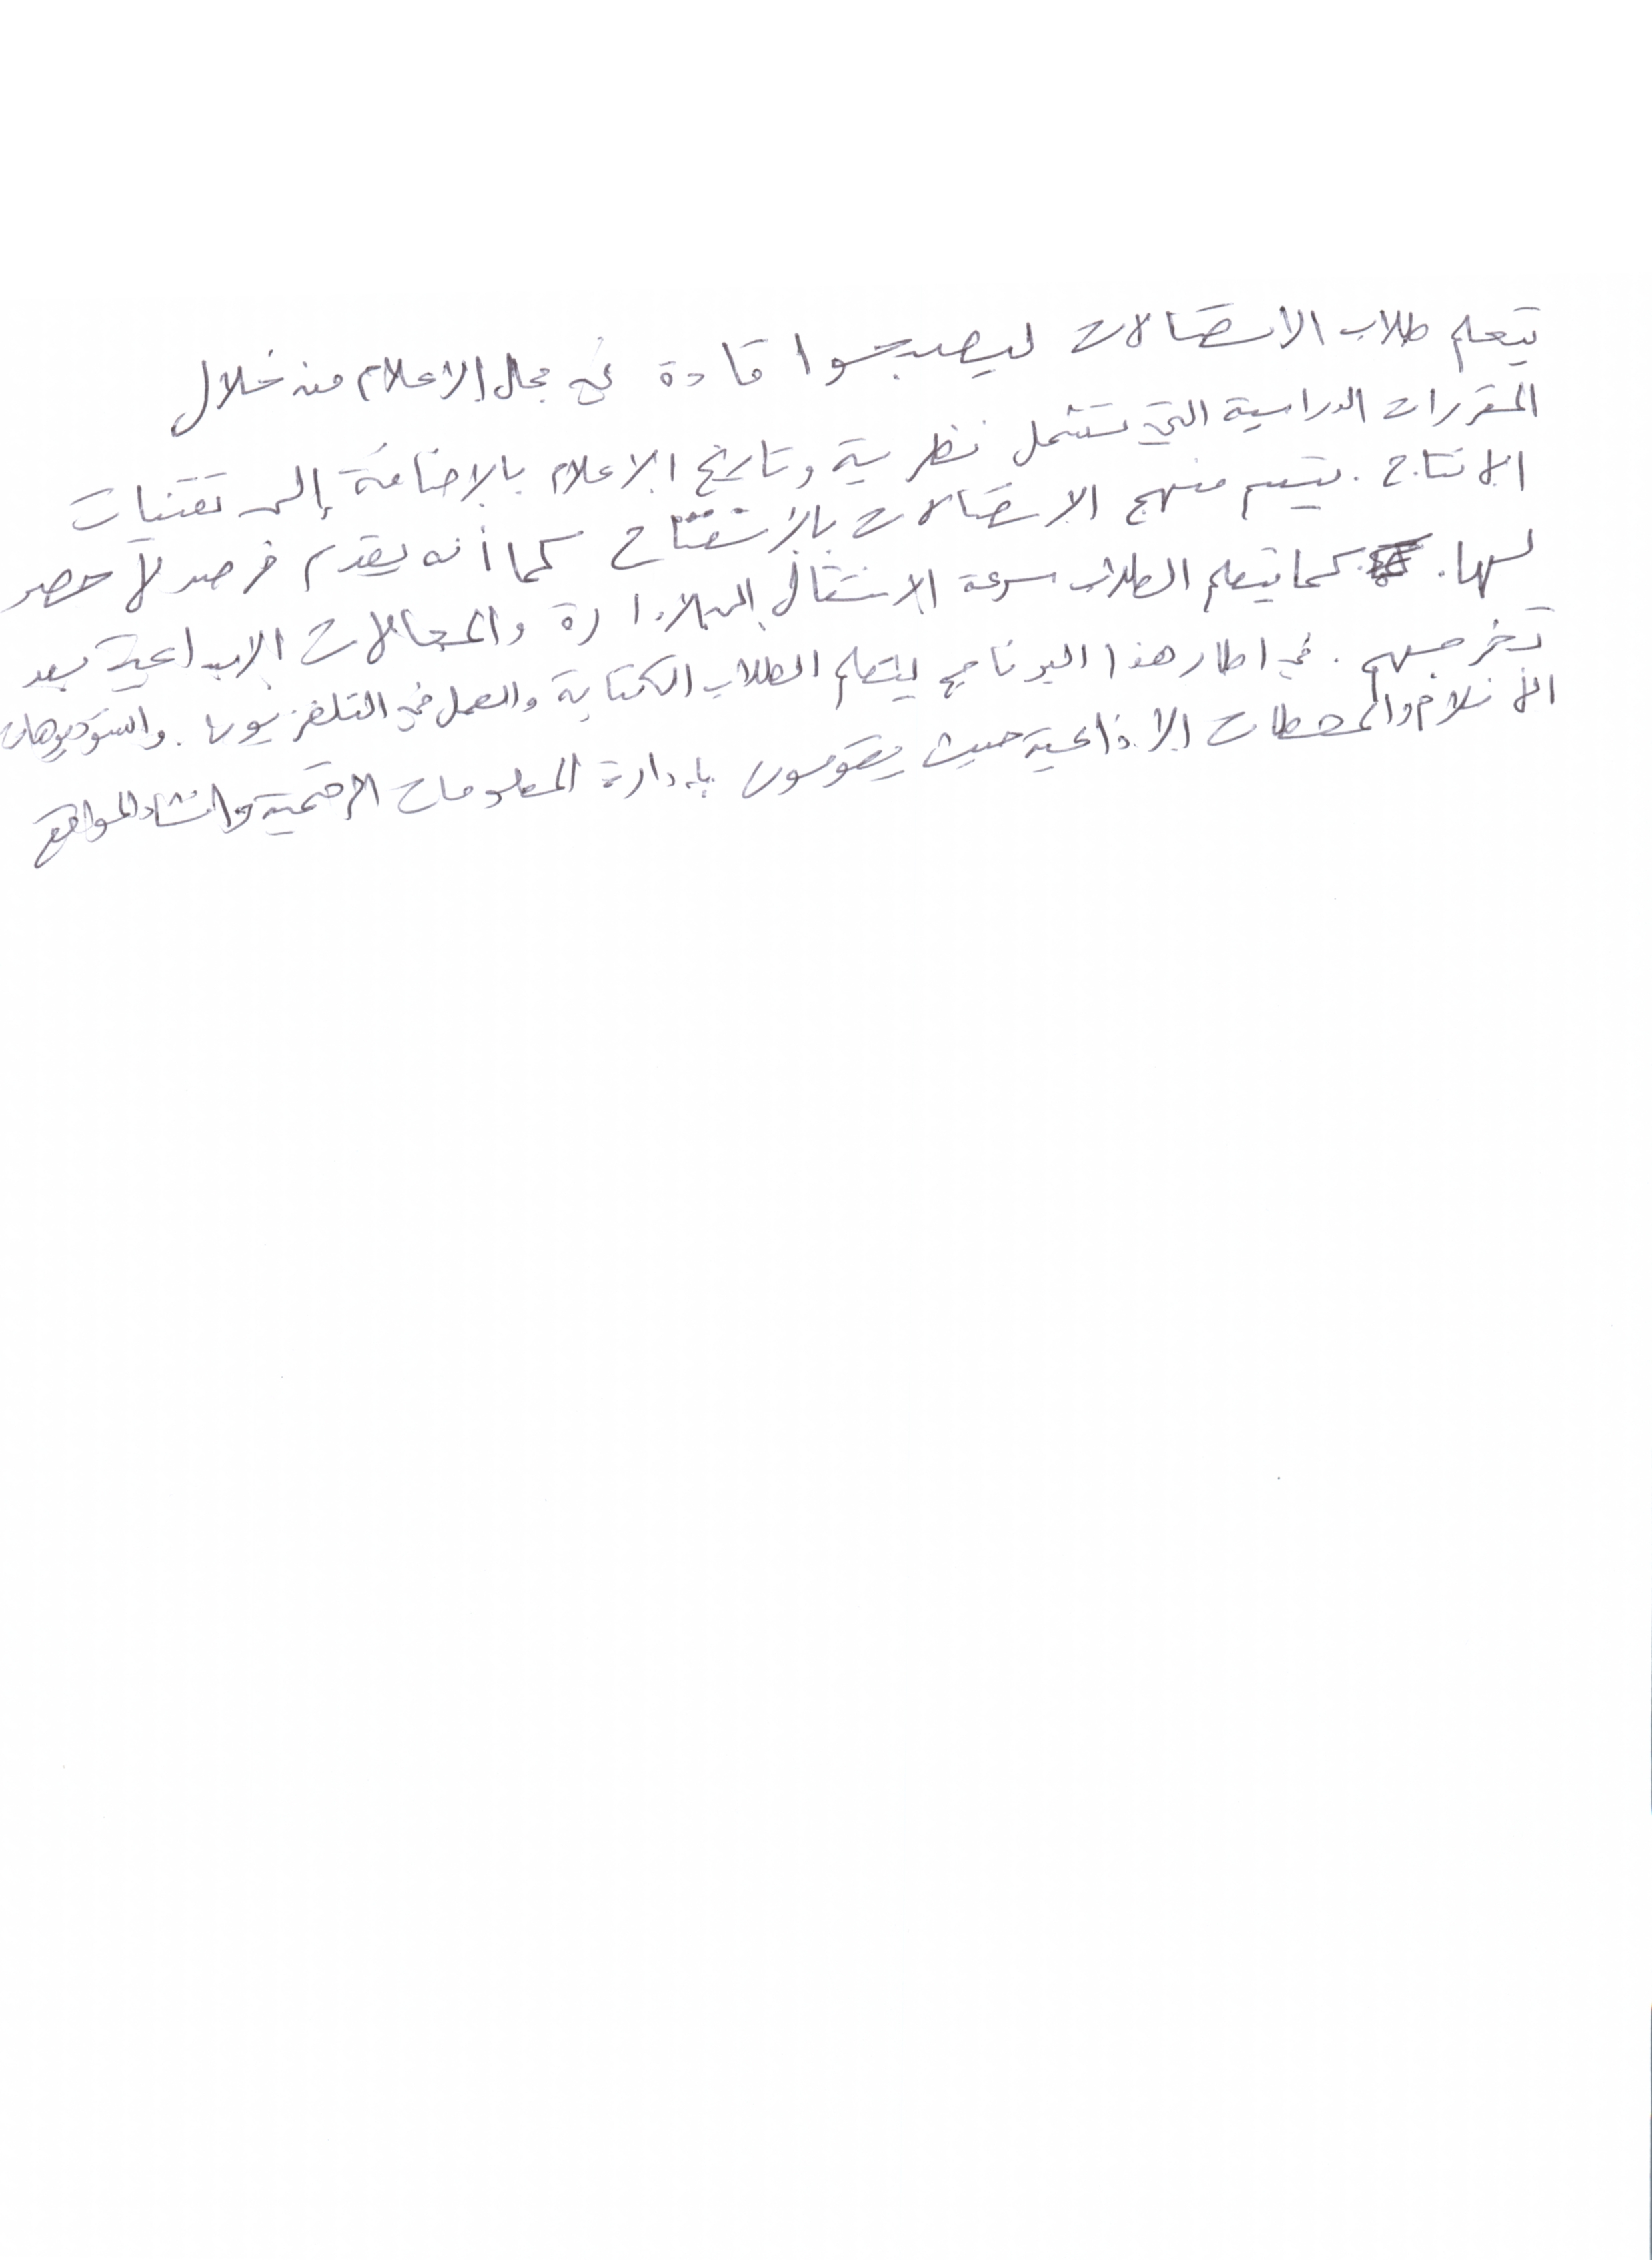 يتعلم طلاب الاتصالات ليصبحوا قادة في مجال الاعلام من خلال
المقررات الدراسية التي تشمل نظرية وتاريخ الاعلام بالاضافة إلى تقنيات
الانتاج. يتسم منهج الاتصالات بالانفتاح كما أنه يقدم فرص لا حصر
لها. كما يتعلم الطلاب سرعة الانتقال الى الادارة والمجالات الابداعية بعد
تخرجهم. في اطار هذا البرنامج يتعلم الطلاب الكتابة والعمل في التلفزيون. واستوديوهات
الأفلام والمحطات الاذاعية حيث يقومون بإدارة المعلومات الرقمية وانشاء المواقع